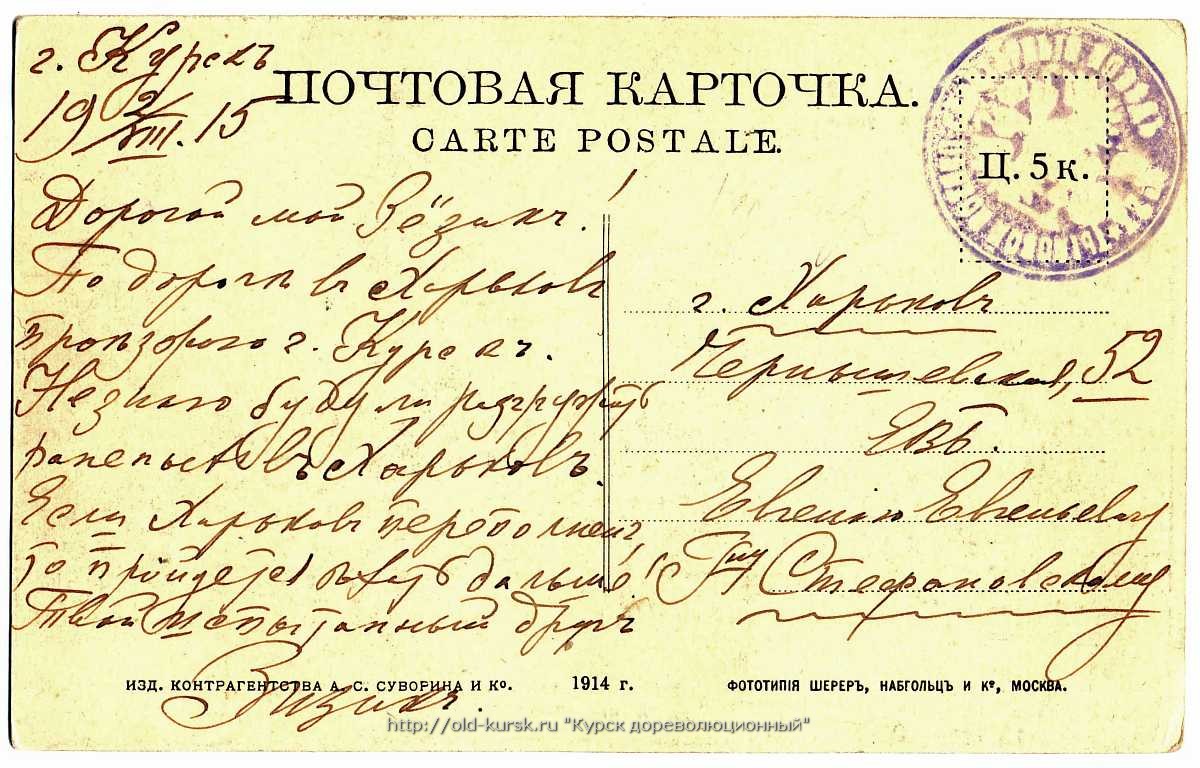 г. Курскъ
19 2/VIII. 15
ПОЧТОВАЯ КАРТОЧКА.
CARTE POSTALE.
Ц. 5 к.
Дорогой мой Зёзикъ!
По дороги въ Харьковъ
проѣздомъ г. Курскъ.
Незнаю буду ли разгружать
раненыхъ въ Харьковъ.
Если Харьковъ переполненъ,
то пройдется ѣхать дальше!
Твой испытанный другъ
Зизикъ.
г. Харьковъ
Чернышевская, 52
ЕВБ.
Евгенію Евгеньевичу
Г-ну Стефановскому
ИЗД. КОНТРАГЕНТСТВА А. С. СУВОРИНА И Ко. 1914 г. ФОТОТИПІЯ ШЕРЕРЪ, НАБГОЛЬЦЪ И Ко, МОСКВА.
http://old-kursk.ru "Курск дореволюционный"